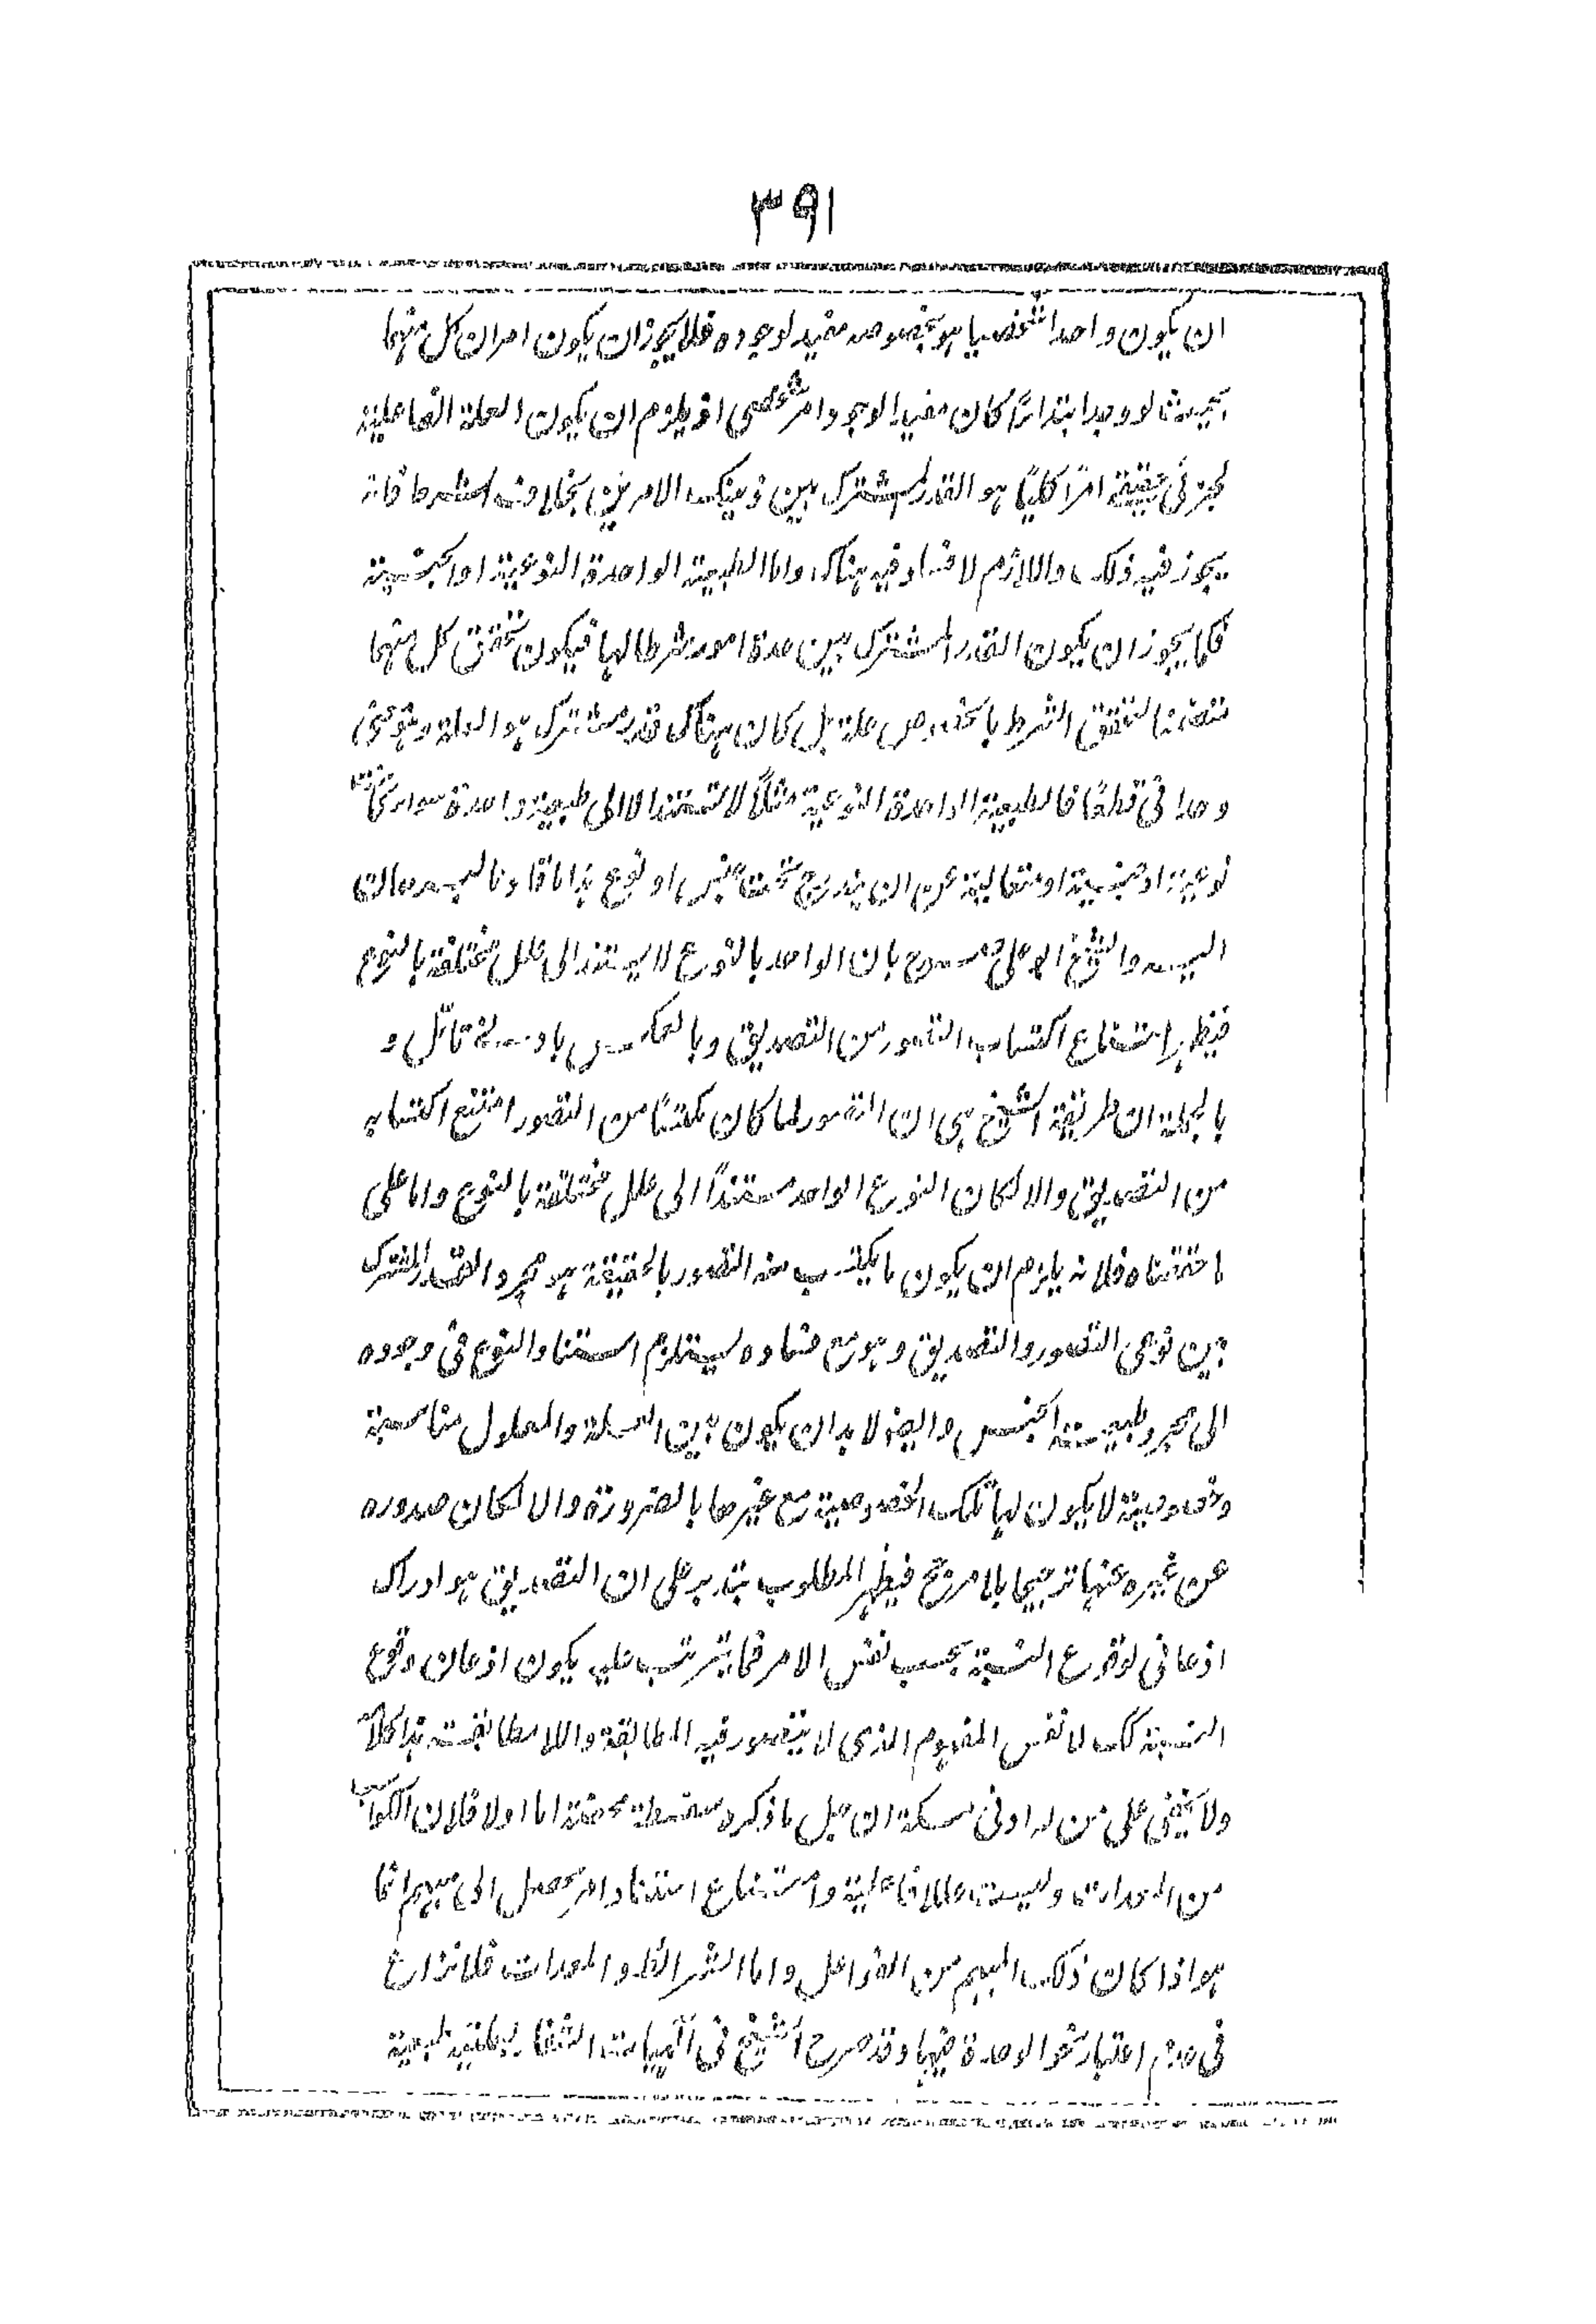 ٣٩١
ان يكون واحدا شخصيا هو بخصوصه مفيد لوجوده فلا يجوز ان يكون امران كل منهما
بحيث لو وجد ابتداءً كان مفيدا لوجود امر شخصى اذ يلزم ان يكون العلة الفاعلية
لجزئى حقيقة امرًا كليًا هو القدر المشترك بين ذينك الامرين بخلاف الشرط فانه
يجوز فيه ذلك واللازم لا فساد فيه هناك واما الطبيعة الواحدة النوعية او الجنسية
فكما يجوز ان يكون القدر المشترك بين عدة امور شرطا لها فيكون تحقق كل منهما
متضمنا لتحقق الشرط بالخصوص علة بل كان هناك قدر مشترك هو العلة وهو معنى
وحدانى قطعًا فالطبيعة الواحدة النوعية مثلًا لا تستند الا الى طبيعة واحدة سواء كانت
نوعية او جنسية او متعالية عن ان يندرج تحت جنس او نوع هذا ما افاد نا
السيد والشيخ ابو على مصرح بان الواحد بالنوع لا يستند الى علل مختلفة بالنوع
فيظهر امتناع اكتساب التصور من التصديق وبالعكس بادنى تامّل و
بالجملة ان طريقة الشيخ هى ان التصور لما كان مكتسبًا من التصور امتنع اكتسابه
من التصديق والا لكان النوع الواحد مستندًا الى علل مختلفة بالنوع واما على
ما حققناه فلانه يلزم ان يكون ما يكتسب منه التصور بالحقيقة هو مجرد القدر المشترك
بين نوعى التصور والتصديق وهو مع فساده يستلزم استناد النوع فى وجوده
الى مجرد طبيعة الجنس وايضا لا بد ان يكون بين العلة والمعلول مناسبة
وخصوصية لا يكون لها تلك الخصوصية مع غيرها بالضرورة والا لكان صدوره
عن غيره عنها ترجيحا بلا مرجح فيظهر المطلوب بتدبر على ان التصديق هو ادراك
اذعانى لوقوع النسبة بحسب نفس الامر فما يترتب عليه يكون اذعان وقوع
النسبة كك لا نفس المفهوم الذى لا يتصور فيه المطابقة واللامطابقة هذا كلامه
ولا يخفى على من له ادنى مسكة ان جل ما ذكره سفسطة محضة اما اولا فلان الكواسب
من المعدات وليست عللا فاعلية وامتناع استناد امر محصل الى مبهم انما
هو اذا كان ذلك المبهم من الفواعل واما الشرائط والمعدات فلا نزاع
فى عدم اعتبار نحو الوحدة فيها وقد صرح الشيخ فى الٰهيات الشفاء